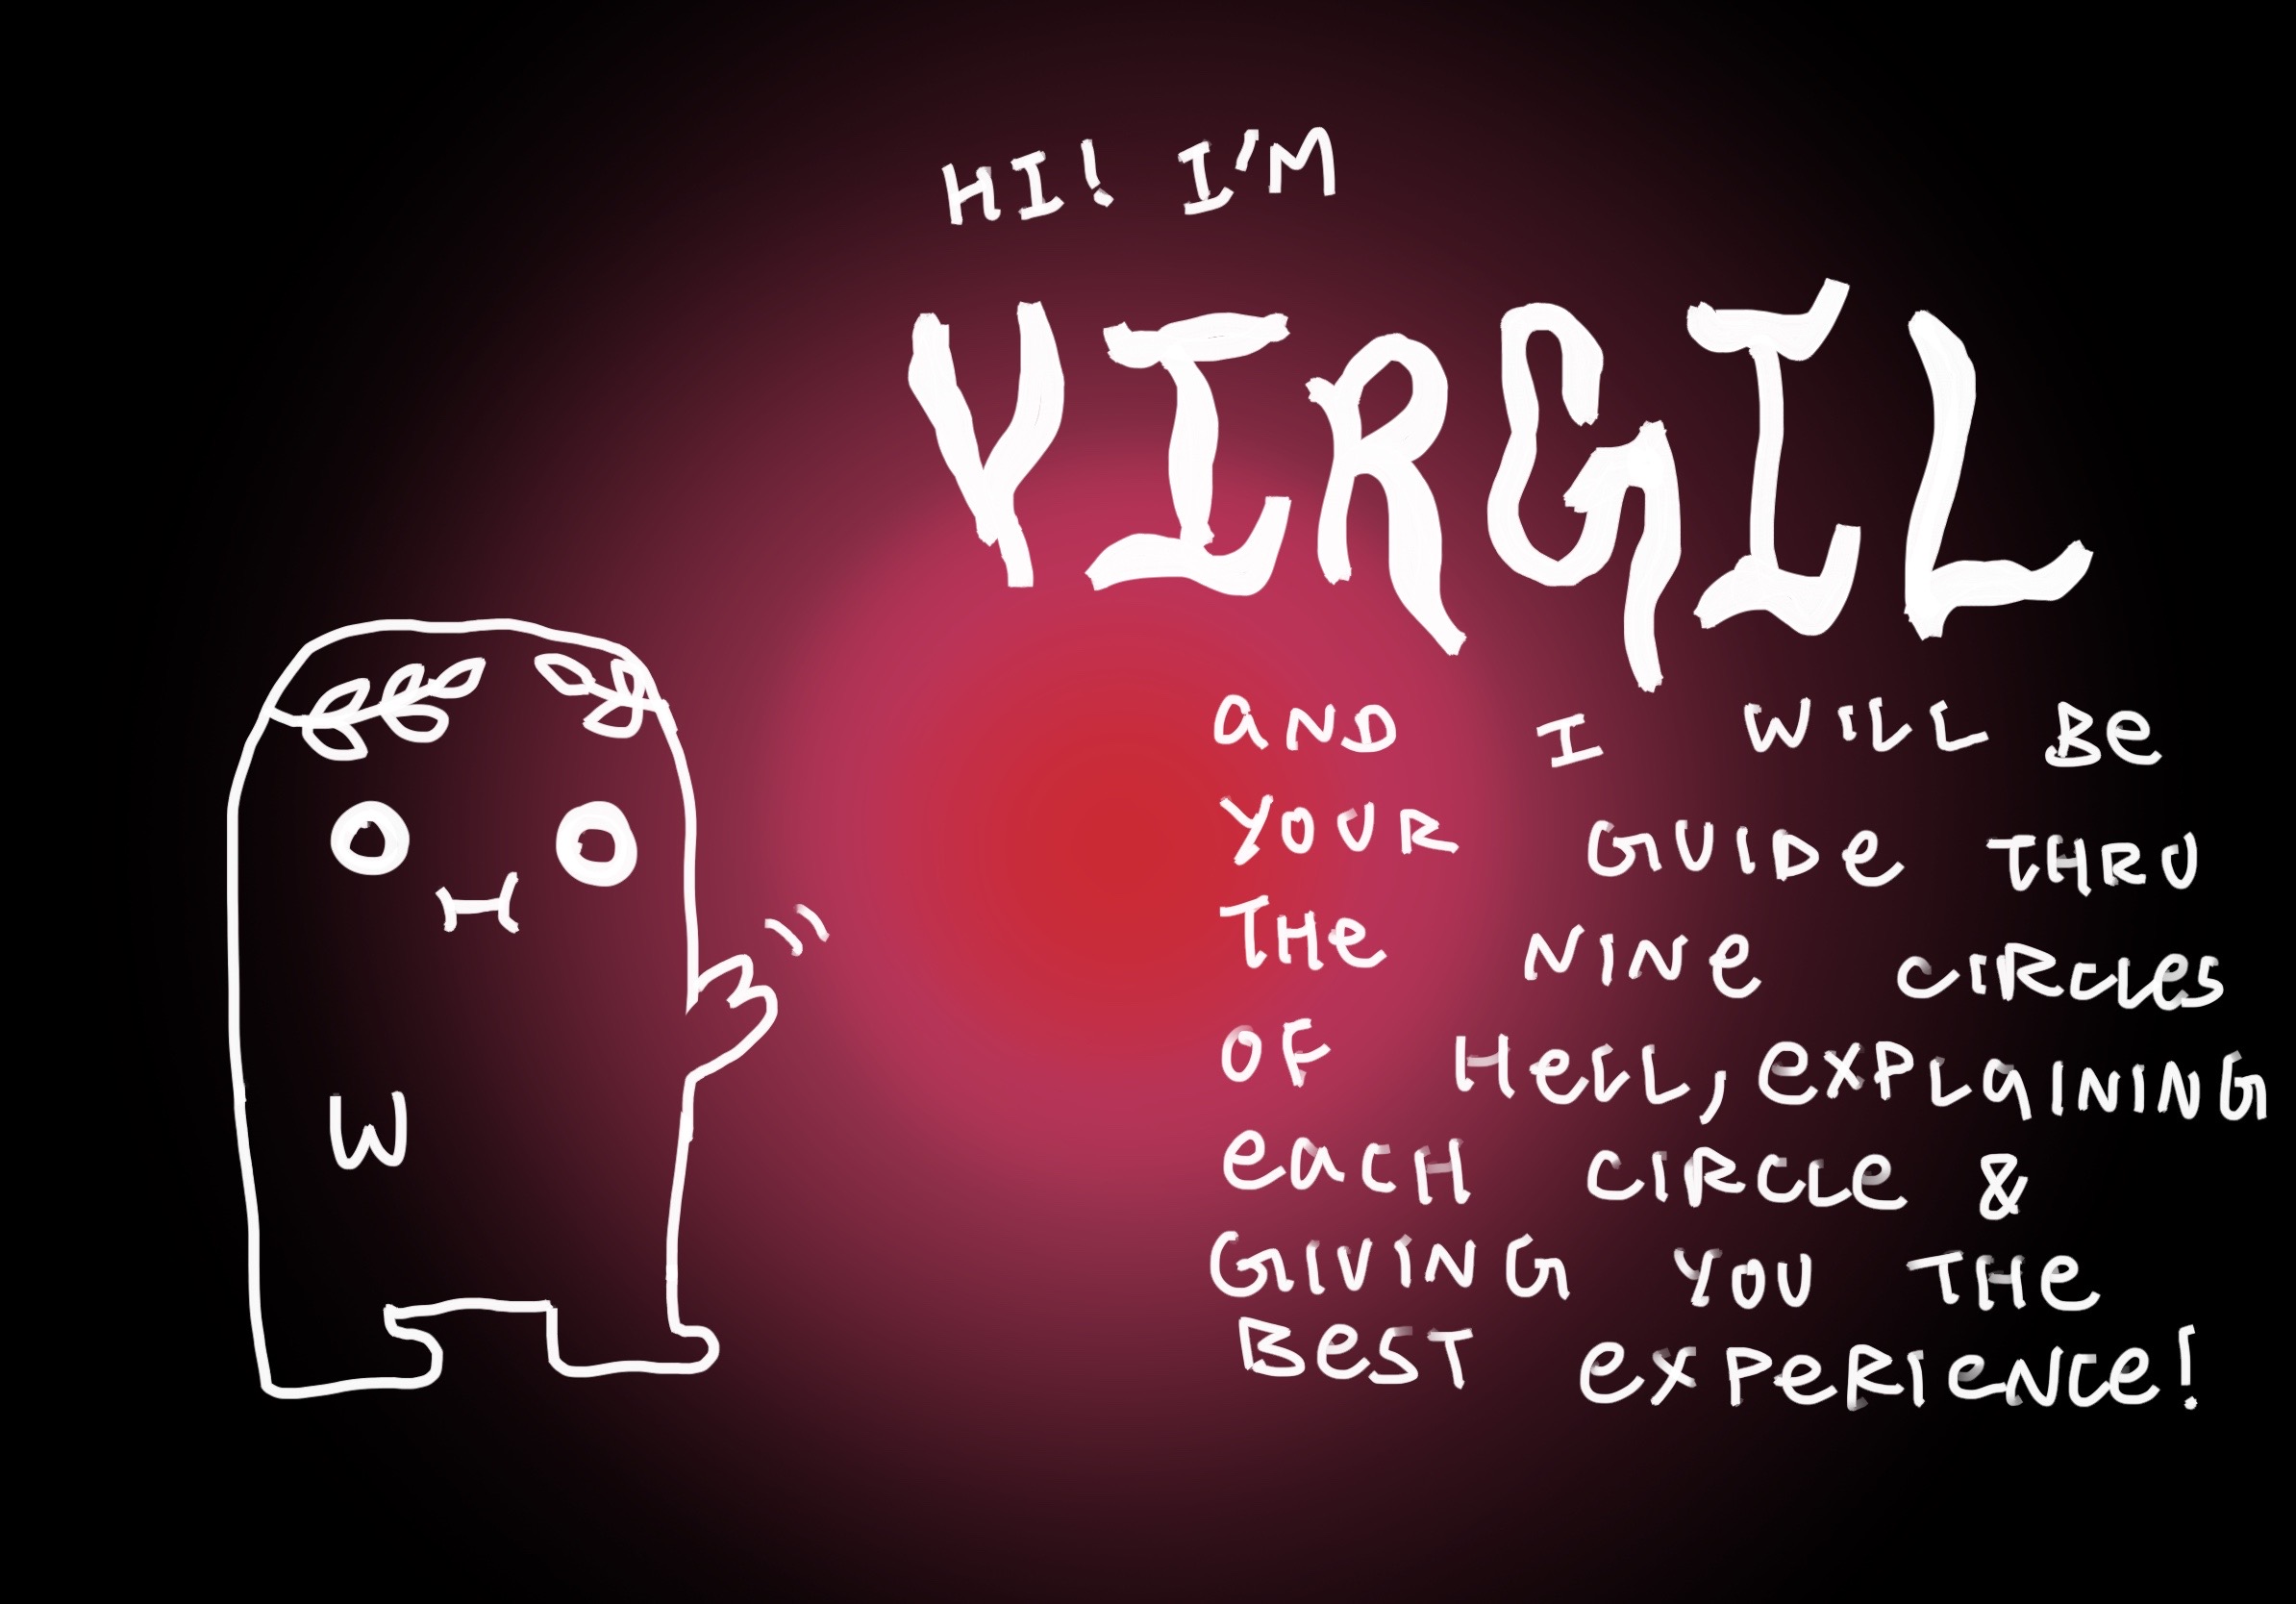 HI! I'M
VIRGIL
AND I WILL BE
YOUR GUIDE THRU
THE NINE CIRCLES
OF HELL, EXPLAINING
EACH CIRCLE &
GIVING YOU THE
BEST EXPERIENCE!
W